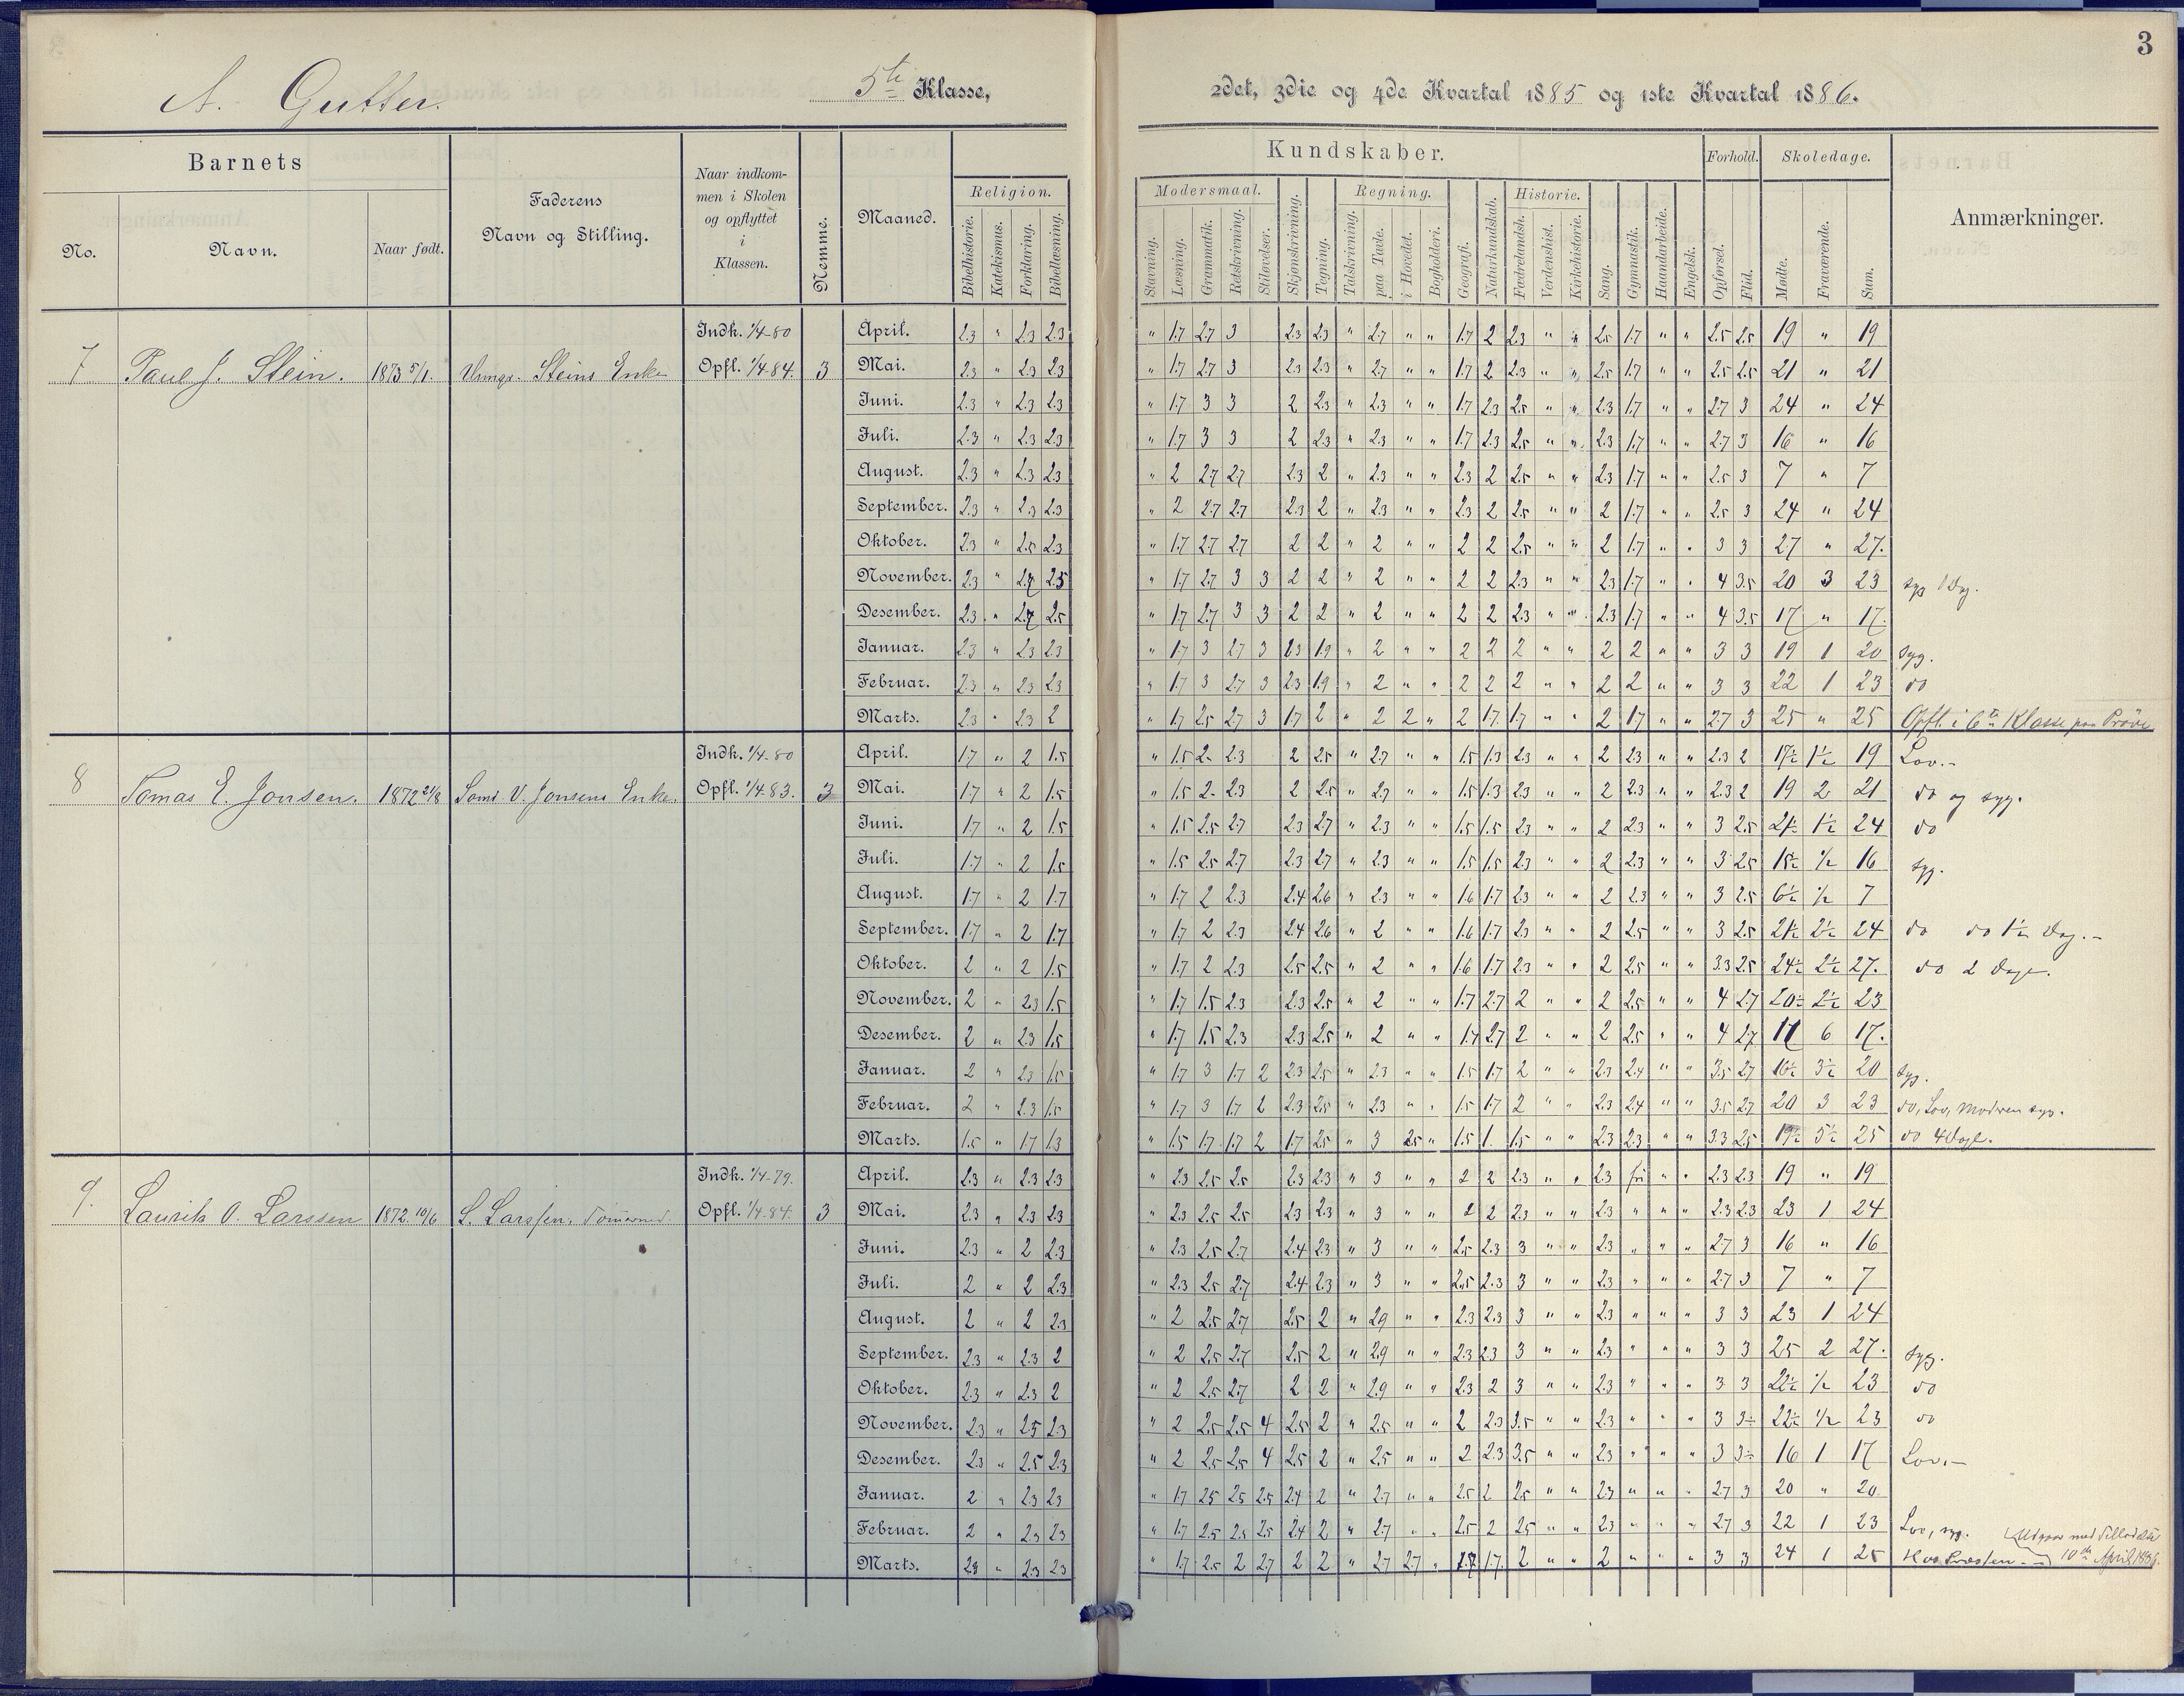 3
A. Gutter. 5te Klasse, 2det, 3die og 4de Kvartal 1885 og 1ste Kvartal 1886.
Barnets
No.
Navn.
Naar født.
Faderens
Navn og Stilling.
Naar indkom-
men i Skolen
og opflyttet
i
Klassen.
Nemme.
Maaned.
Kundskaber.
Religion.
Bibelhistorie.
Katekismus.
Forklaring.
Bibellæsning.
Modersmaal.
Stavning.
Læsning.
Grammatik.
Retskrivning.
Stiløvelser.
Skjønskrivning.
Tegning.
Regning.
Talskrivning.
paa Tavle.
i Hovedet.
Bogholderi.
Geografi.
Naturkundskab.
Historie.
Fædrelandst.
Verdenshist.
Kirkehistorie.
Sang.
Gymnastik.
Haandarbeide.
Engelsk.
Forhold.
Opførsel.
Flid.
Skoledage.
Mødte.
Fraværende.
Sum.
Anmærkninger.
7 Paul J. Stein. 1873 5/1. Steins Enke Indk. 1/4-80 Opfl. 1/4 84. 3
April. 2.3 " 2.3 2.3 " 1.7 2.7 3 2.3 2.3 " 2.7 " " 1.7 2 2.3 " " 2.5 1.7 " " 2.5 2.5 19 " 19
Mai. 2.3 " 2.3 2.3 " 1.7 2.7 3 2.3 2.3 " 2.7 " " 1.7 2 2.3 " " 2.5 1.7 " " 2.5 2.5 21 " 21
Juni. 2.3 " 2.3 2.3 " 1.7 3 3 2 2.3 " 2.3 " " 1.7 2.3 2.5 " " 2.3 1.7 " " 2.7 3 24 " 24
Juli. 2.3 " 2.3 2.3 " 1.7 3 3 2 2.3 " 2.3 " " 1.7 2.3 2.5 " " 2.3 1.7 " " 2.7 3 16 " 16
August. 2.3 " 2.3 2.3 " 2 2.7 2.7 2.3 2 " 2.3 " " 2.3 2 2.5 " " 2.3 1.7 " " 2.5 3 7 " 7
September. 2.3 " 2.3 2.3 " 2 2.7 2.7 2.3 2 " 2.3 " " 2.3 2 2.5 " " 2 1.7 " " 2.5 3 24 " 24
Oktober. 2.3 " 2.5 2.3 " 1.7 2.7 2.7 2 2 " 2 " " 2 2 2.5 " " 2 1.7 " " 3 3 27 " 27.
November. 2.3 " 2.7 2.5 " 1.7 2.7 3 3 2 2 " 2 " " 2 2 2.3 " " 2.3 1.7 " " 4 3.5 20 3 23 syg 1 Dag.
Desember. 2.3 " 2.7 2.5 " 1.7 2.7 3 3 2 2 " 2 " " 2 2 2.3 " " 2.3 1.7 " " 4 3.5 17 " 17.
Januar. 2.3 " 2.3 2.3 " 1.7 3 2.7 3 2.3 1.9 " 2 " " 2 2 2 " " 2 2 " " 3 3 19 1 20 syg.
Februar. 2.3 " 2.3 2.3 " 1.7 3 2.7 3 2.3 1.9 " 2 " " 2 2 2 " " 2 2 " " 3 3 22 1 23 do
Marts. 2.3 " 2.3 2 " 1.7 2.5 2.7 3 1.7 2 " 2 2 " 2 1.7 1.7 " " 2 1.7 " " 2.7 3 25 " 25 Opfl. i 6te Klasse paa Prøve
8 Tomas E. Jonsen. 1872 21/8 V. Jonsens Enke. Indk. 1/4-80 Opfl. 1/4 83. 3
April. 1.7 " 2 1.5 " 1.5 2 2.3 2 2.5 " 2.7 " " 1.5 1.3 2.3 " " 2 2.3 " " 2.3 2 17½ 1½ 19 Lov.
Mai. 1.7 " 2 1.5 " 1.5 2 2.3 2 2.5 " 2.7 " " 1.5 1.3 2.3 " " 2 2.3 " " 2.3 2 19 2 21 do og syg.
Juni. 1.7 " 2 1.5 " 1.5 2.5 2.7 2.3 2.7 " 2.3 " " 1.5 1.5 2.3 " " 2 2.3 " " 3 2.5 21½ 1½ 24 do
Juli. 1.7 " 2 1.5 " 1.5 2.5 2.7 2.3 2.7 " 2.3 " " 1.5 1.5 2.3 " " 2 2.3 " " 3 2.5 15½ ½ 16 syg.
August. 1.7 " 2 1.7 " 1.7 2 2.3 2.4 2.6 " 2.3 " " 1.6 1.7 2.3 " " 2 2.3 " " 3 2.5 6½ ½ 7
September. 1.7 " 2 1.7 " 1.7 2 2.3 2.4 2.6 " 2 " " 1.6 1.7 2.3 " " 2 2.5 " " 3 2.5 21½ 2½ 24 do do 1½ Dag.
Oktober. 2 " 2 1.5 " 1.7 2 2.3 2.5 2.5 " 2 " " 1.6 1.7 2.3 " " 2 2.5 " " 3.3 2.5 24½ 2½ 27. do 2 Dage.
November. 2 " 2.3 1.5 " 1.7 1.5 2.3 2.3 2.5 " 2 " " 1.7 2.7 2 " " 2 2.5 " " 4 2.7 20½ 2½ 23
Desember. 2 " 2.3 1.5 " 1.7 1.5 2.3 2.3 2.5 " 2 " " 1.7 2.7 2 " " 2 2.5 " " 4 2.7 11 6 17.
Januar. 2 " 2.3 1.5 " 1.7 3 1.7 2 2.3 2.5 " 2.3 " " 1.5 1.7 2 " " 2.3 2.4 " " 3.5 2.7 16½ 3½ 20 syg.
Februar. 2 " 2.3 1.5 " 1.7 3 1.7 2 2.3 2.5 " 2.3 " " 1.5 1.7 2 " " 2.3 2.4 " " 3.5 2.7 20 3 23 do, Lov, Modren syg.
Marts. 1.5 " 1.7 1.3 " 1.5 1.7 1.7 2 1.7 2.5 " 3 2.5 " 1.5 1. 1.5 " " 2.3 2.3 " " 3.3 2.5 19½ 5½ 25 do 4 Dage.
9. Laurits O. Larssen 1872 10/6 L. Larssen, Indk. 1/4-79. Opfl. 1/4-84. 3
April. 2.3 " 2.3 2.3 " 2.3 2.5 2.5 2.3 2.3 " 3 " " 2 2 2.3 " " 2.3 fri " " 2.3 2.3 19 " 19
Mai. 2.3 " 2.3 2.3 " 2.3 2.5 2.5 2.3 2.3 " 3 " " 2 2 2.3 " " 2.3 " " " 2.3 2.3 23 1 24
Juni. 2.3 " 2 2.3 " 2.3 2.5 2.7 2.4 2.3 " 3 " " 2.5 2.3 3 " " 2.3 " " " 2.7 3 16 " 16
Juli. 2 " 2 2.3 " 2.3 2.5 2.7 2.4 2.3 " 3 " " 2.5 2.3 3 " " 2.3 " " " 2.7 3 7 " 7
August. 2 " 2 2.3 " 2 2.5 2.7 2.5 2 " 2.9 " " 2.3 2.3 3 " " 2.3 " " " 3 3 23 1 24
September. 2.3 " 2.3 2 " 2 2.5 2.7 2.5 2 " 2.9 " " 2.3 2.3 3 " " 2.3 " " " 3 3 25 2 27. syg.
Oktober. 2.3 " 2.3 2 " 2 2.5 2.7 2 2 " 2.9 " " 2.3 2 3 " " 2.3 " " " 3 3 22½ ½ 23 do
November. 2.3 " 2.5 2.3 " 2 2.5 2.5 4 2.5 2 " 2.5 " " 2 2.3 3.5 " " 2.3 " " " 3 3½ 22½ ½ 23 do
Desember. 2.3 " 2.5 2.3 " 2 2.5 2.5 4 2.5 2 " 2.5 " " 2 2.3 3.5 " " 2.3 " " " 3 3½ 16 1 17 Lov.
Januar. 2 " 2.3 2.3 " 1.7 2.5 2.5 2.5 2.4 2 " 2.7 " " 2.5 2 2.5 " " 2.3 " " " 2.7 3 20 " 20
Februar. 2 " 2.3 2.3 " 1.7 2.5 2.5 2.5 2.4 2 " 2.7 " " 2.5 2 2.5 " " 2.3 " " " 2.7 3 22 1 23 Lov, syg.
Marts. 2.3 " 2.3 2.3 " 1.7 2.5 2 2.7 2 2 " 2.7 2.7 " 1.7 1.7 2 " " 2 " " " 3 3 24 1 25 Hos Præsten. Udgaar med 10de April 1886.